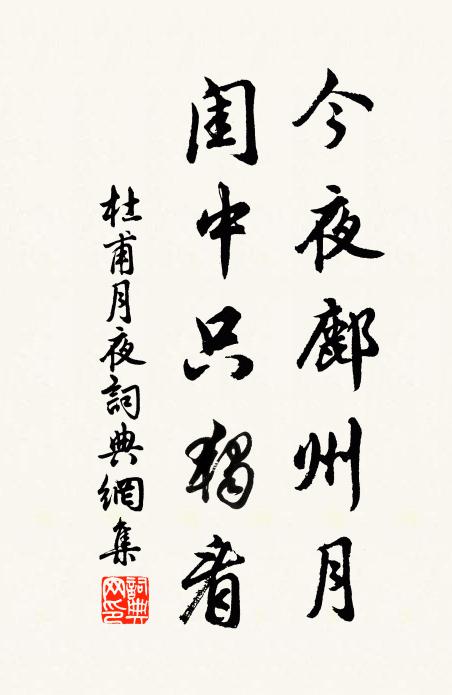 今夜鄜州月
閨中只獨看
杜甫月夜詞典網集
詞典網印